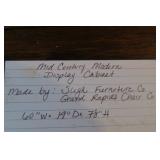 Mid Century Modern
Display Cabinet
Made by: Sligh Furniture Co
Grand Rapids Chair Co
60"W x 19"D x 78"H